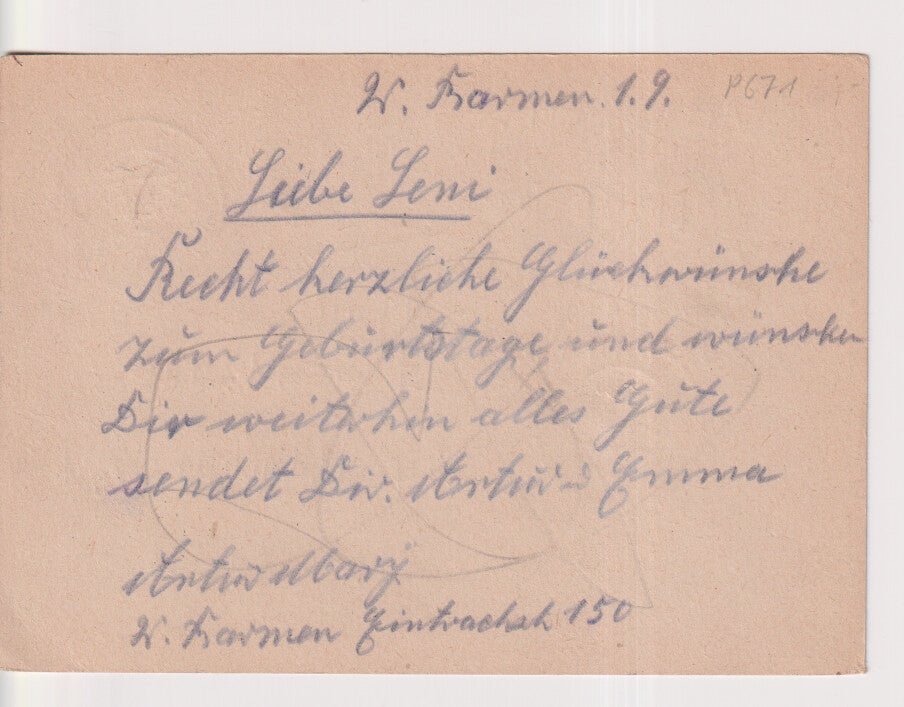 W. Barmen. 1.9. P671
Liebe Leni
Recht herzliche Glückwünsche
zum Geburtstage, und wünschen
Dir weiterhin alles Gute
sendet Dir. Artur u Emma
Artur
W. Barmen Eintrachtstr 150